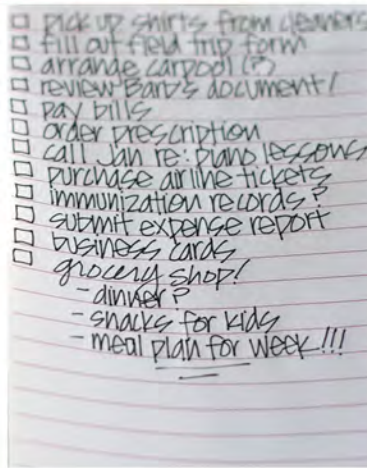 □ pick up shirts from cleaners
□ fill out field trip form
□ arrange carpool (?)
□ review Barb's document!
□ pay bills
□ order prescription
□ call Jan re: piano lessons
□ purchase airline tickets
□ immunization records?
□ submit expense report
□ business cards
□ grocery shop!
- dinner?
- snacks for kids
- meal plan for week!!!